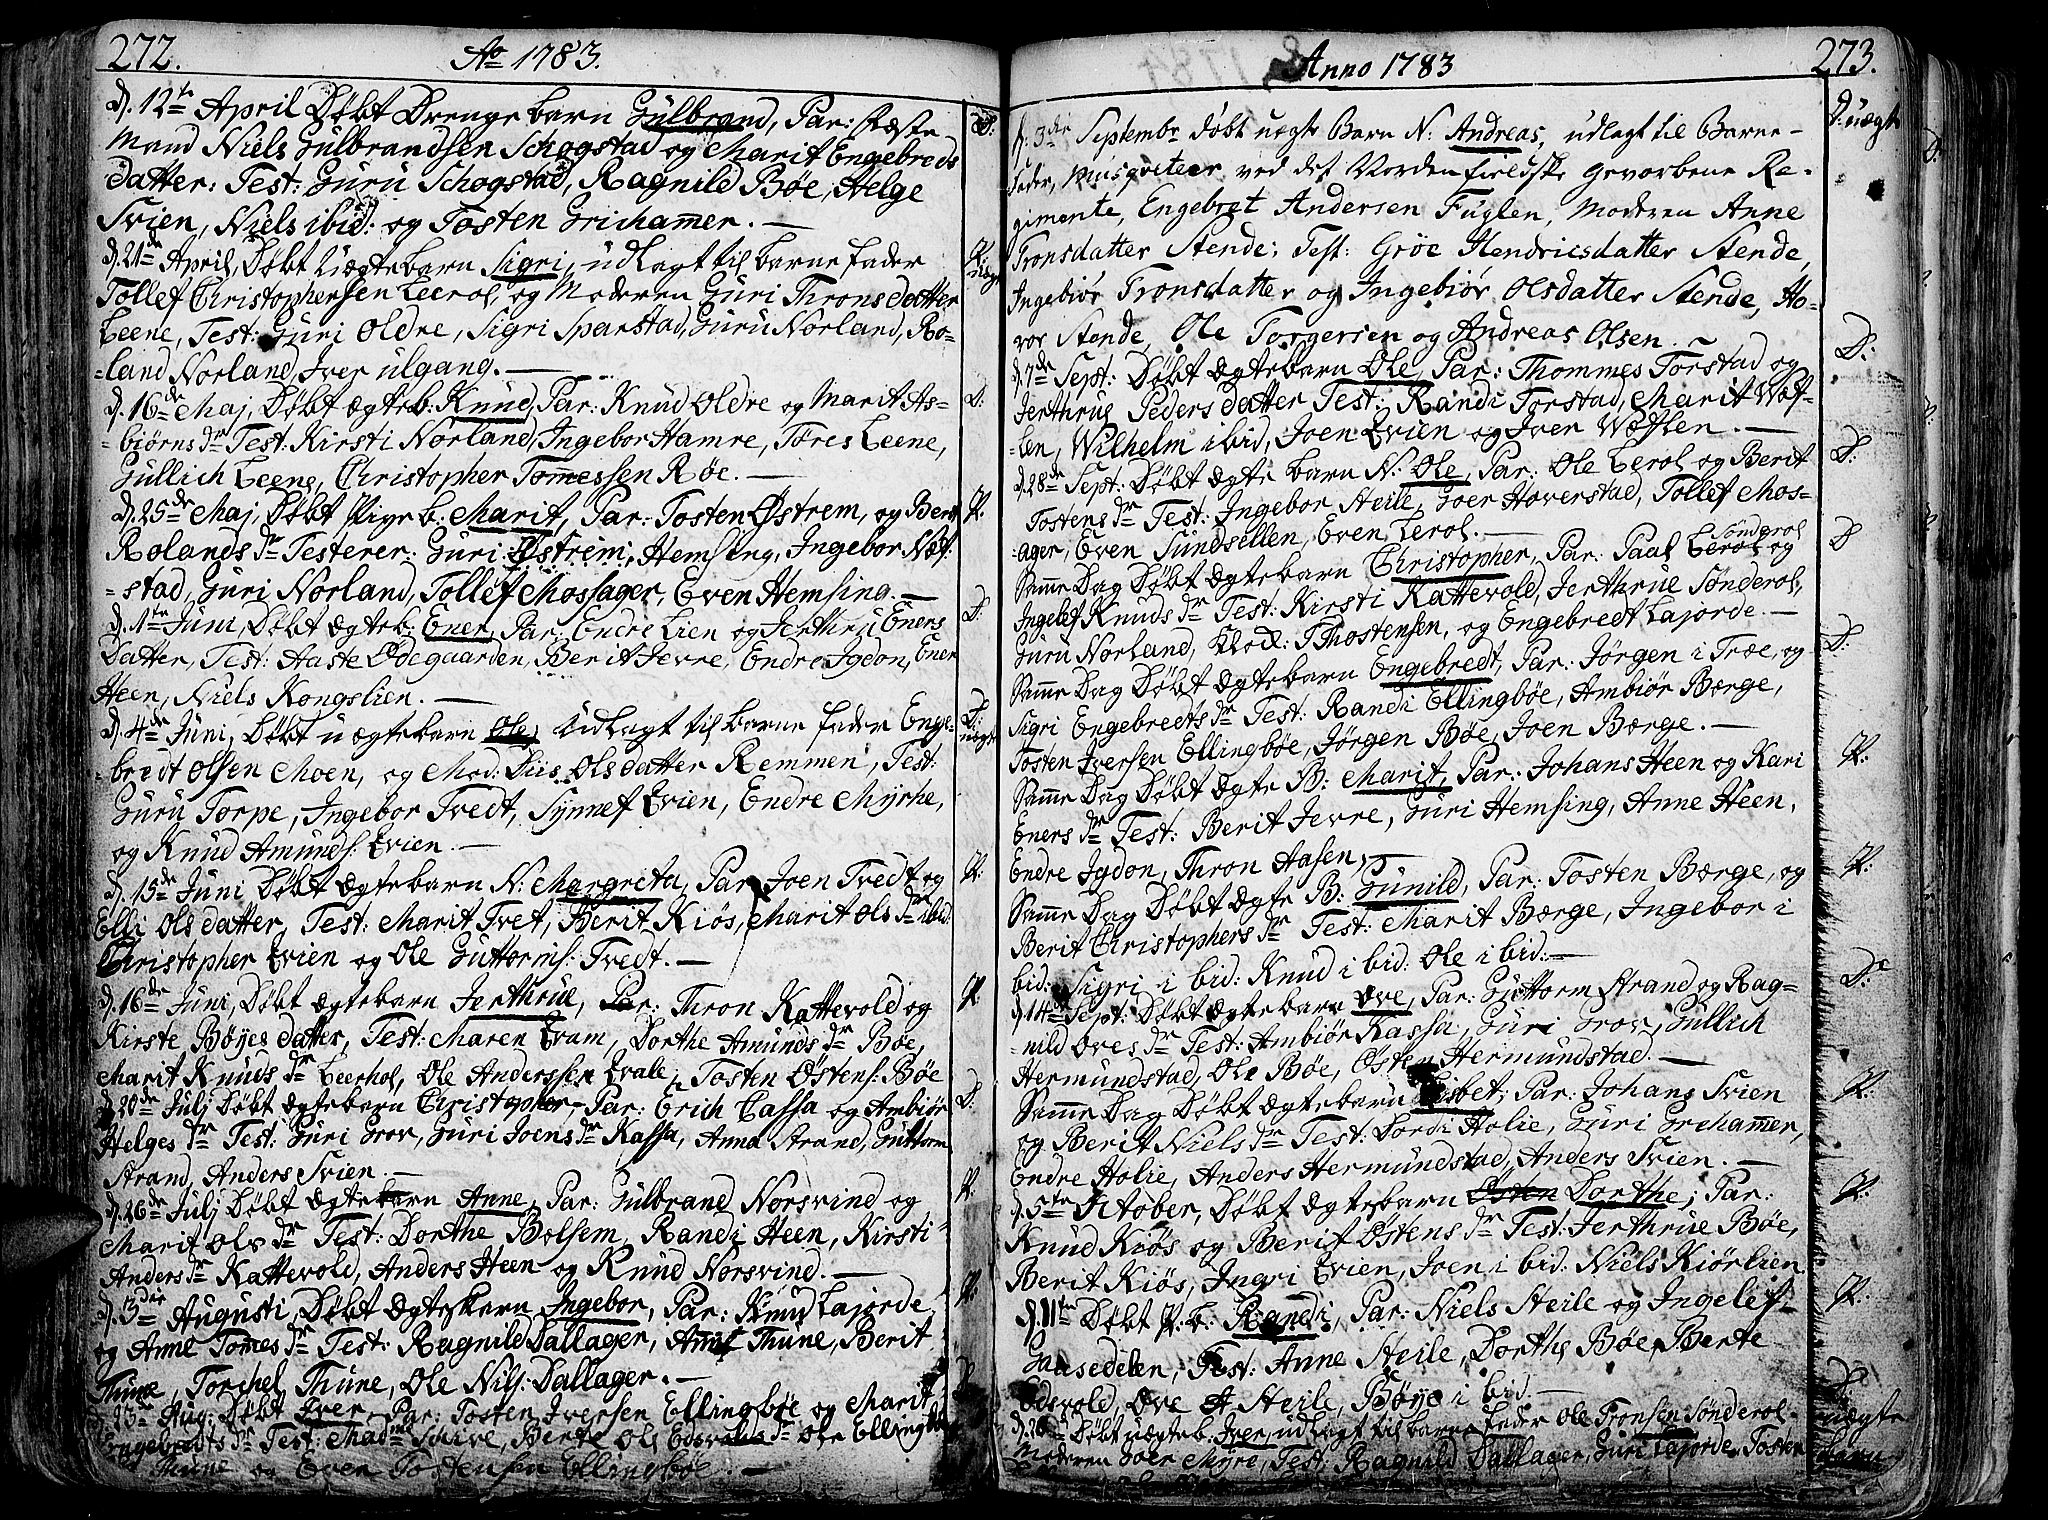 272. Ao 1783.
d. 12te April Døbt Drengebarn Gulbrand, Par: Fæste
Mand Niels Gulbrandsen Schogstad og Marit Engebreds
datter: Test: Guru Schogstad, Ragnild Bøe, Helge
Svien, Niels ibid: og Tosten Grihamer. —
d. 21de April, Døbt Uægtebarn Sigri, udlagt til barne fader
Tollef Christophersen Leerol, og Moderen Guri Throns datter
Leene, Test: Guri Oldre, Sigri Sparstad, Guru Norland, Ro-
=land Norland, Iver ulgang. —
d. 16de Maj, Døbt ægteb: Knud, Par: Knud Oldre og Marit As-
=biørns dr Test: Kirsti Norland, Ingebor Hamre, Tores Leene,
Gullich Leene, Christopher Tomessen Røe. —
d. 25de Maj, Døbt Pige b: Marit, Par: Tosten Østrem, og Berit
Rolands dr Testerer: Guri Østrim, Hemsing, Ingebor Næf-
=stad, Guri Norland, Tollef Mossager, Even Hemsing. —
d. 1te Juni, Døbt Ægteb: Ener, Par: Endre Lien og Jerthru Eners
Datter, Test: Aaste Ødegaarden, Berit Jevre, Endre Jgdon, Ener
Heen, Niels Kongslien. —
d. 4de Juni, Døbt uægtebarn Ole, Udlagt til barne fader Enge-
=bredt Olsen Moen, og Mod: Siis Olsdatter Remmen, Test:
Guru Torpe, Ingebor Tvedt, Synnef Qvien, Endre Myrhe,
og Knud Amunds: Qvien. —
d. 15de Juni Døbt Ægtebarn N: Margreta, Par Joen Tvedt og
Elli Olsdatter, Test: Marit Tvet, Berit Kiøs, Marit Ols dr ibid
Christopher Qvien og Ole Guttorms: Tvedt. —
d. 16de Juni, Døbt Ægtebarn Jerthrue, Par: Thron Kattevold og
Kirste Bøyes datter, Test: Maren Qvam, Dorthe Amunds dr Bøe,
Marit Knuds dr Leerhol, Ole Anderssen Qvale, Tosten Østens: Bøe
d. 20de Julj Døbt Ægtebarn Christopher, Par: Erich Cassa og Ambiør
Helges dr Test: Guri Grov, Guri Joens dr Kassa, Anna Strand, Guttorm
Strand, Anders Svien. —
d. 26de Julj Døbt Ægtebarn Anne, Par: Gulbrand Norsvind og
Marit Ols dr Test: Dorthe Bolsem, Randi Heen, Kirsti
Anders dr Kattevold, Anders Heen og Knud Norsvind. —
d. 3die Augusti, Døbt Ægtebarn Ingebor, Par: Knud Lajorde
og Anne Tomes dr Test: Ragnild Dallager, Thune, Berit
Thune, Torchel Thune, Ole Nils: Dallager. —
d. 13de Aug: Døbt Iver, Par: Tosten Iversen Ellingbøe og Marit
Engebredts dr Test: Madme Schive, Berte Ols Edsvolds dr Ole Ellingbøe
Thune og Even Tostensen Ellingbøe. —
D:
P: uægte
D.
P.
D.
D: uægte
P:
P:
D:
P.
P:
D.
Anno 1783 273.
d. 3die Septembr døbt uægte Barn N: Andreas, udlagt til Barne-
fader, Musqueteer ved det Nordenfieldske Gevorbene Re-
gimente, Engebret Andersen Fuglen, Modren Anne
Tronsdatter Stende; Test: Grøe Hendricsdatter Stende,
Ingebiør Tronsdatter og Ingebiør Olsdatter Stende, Ho-
vor Stende, Ole Torgersen og Andreas Olsen.
d. 7de Sept: Døbt Ægtebarn Ole, Par: Thommes Torstad og
Jerthrug Peders datter Test: Randi Torstad, Marit Wæf-
=len, Wilhelm ibid, Joen Qvien og Iver Wæflen. —
d. 28de Sept: Døbt Ægte barn N: Ole, Par: Ole Lerol og Berit
Tostens dr Test: Ingebor Steile, Goer Hoverstad, Tollef Mos-
ager, Even Sundsellen, Even Lerol. —
Sønderol
Samme Dag Døbt Ægtebarn Christopher, Par: Paal Lerol og
Ingelef Knuds dr Test: Kirsti Kattevold, Jerthrue Sønderol,
Guru Norland, Thostensen, og Engebredt Lajorde. —
Samme Dag Døbt Ægtebarn Engebredt, Par: Jørgen i Træe, og
Sigri Engebredts dr Test: Randi Ellingbøe, Ambiør Børge,
Tosten Iversen Ellingbøe, Jørgen Bøe, Joen Børge. —
Samme Dag Døbt Ægte B: Marit, Par: Johans Heen og Kari
Eners dr Test: Berit Jevre, Guri Hemsing, Anne Heen,
Endre Jgdon, Thron Aasen. —
Samme Dag Døbt Ægte B: Gunild, Par: Tosten Børge, og
Berit Christophers dr Test: Marit Børge, Ingebor i
bid: Sigri i bid: Knud i bid: Ole i bid: —
d. 14de Sept: Døbt Ægtebarn Ove, Par: Guttorm Strand og Rag-
=nild Oves dr Test: Ambiør Kassa, Guri Grov, Gullich
Hermundstad, Ole Bøe, Østen Hermundstad. —
Samme Dag Døbt Ægtebarn Lisbet; Par: Johans Svien
og Berit Niels dr Test: Dordi Holie, Guri Grehammer,
Endre Holie, Anders Hermundstad, Anders Svien. —
d. 5te October, Døbt Ægtebarn Østen Dorthe; Par:
Knud Kiøs og Berit Østens dr Test: Jerthrue Bøe,
Berit Kiøs, Ingri Qvien, Joen i bid: Niels Kiørlien
d. 11te Døbt P. b: Randi, Par: Niels Steile og Ingelef
Gaasedelen, Test: Anne Steile, Dorthe Bøe, Berte
Edsvold, Ove A Steile, Bøye i bid. —
d. 26de Døbt uægteb. Iver, udlagt til barne fader Ole Tronsen Sønderol
Moderen Goer Myre, Test: Ragnild Dallager, Guri Lajorde, Tosten
D: uægte
D:
D:
D
D:
P:
P:
D:
P:
P:
P:
D:
uægte
barn